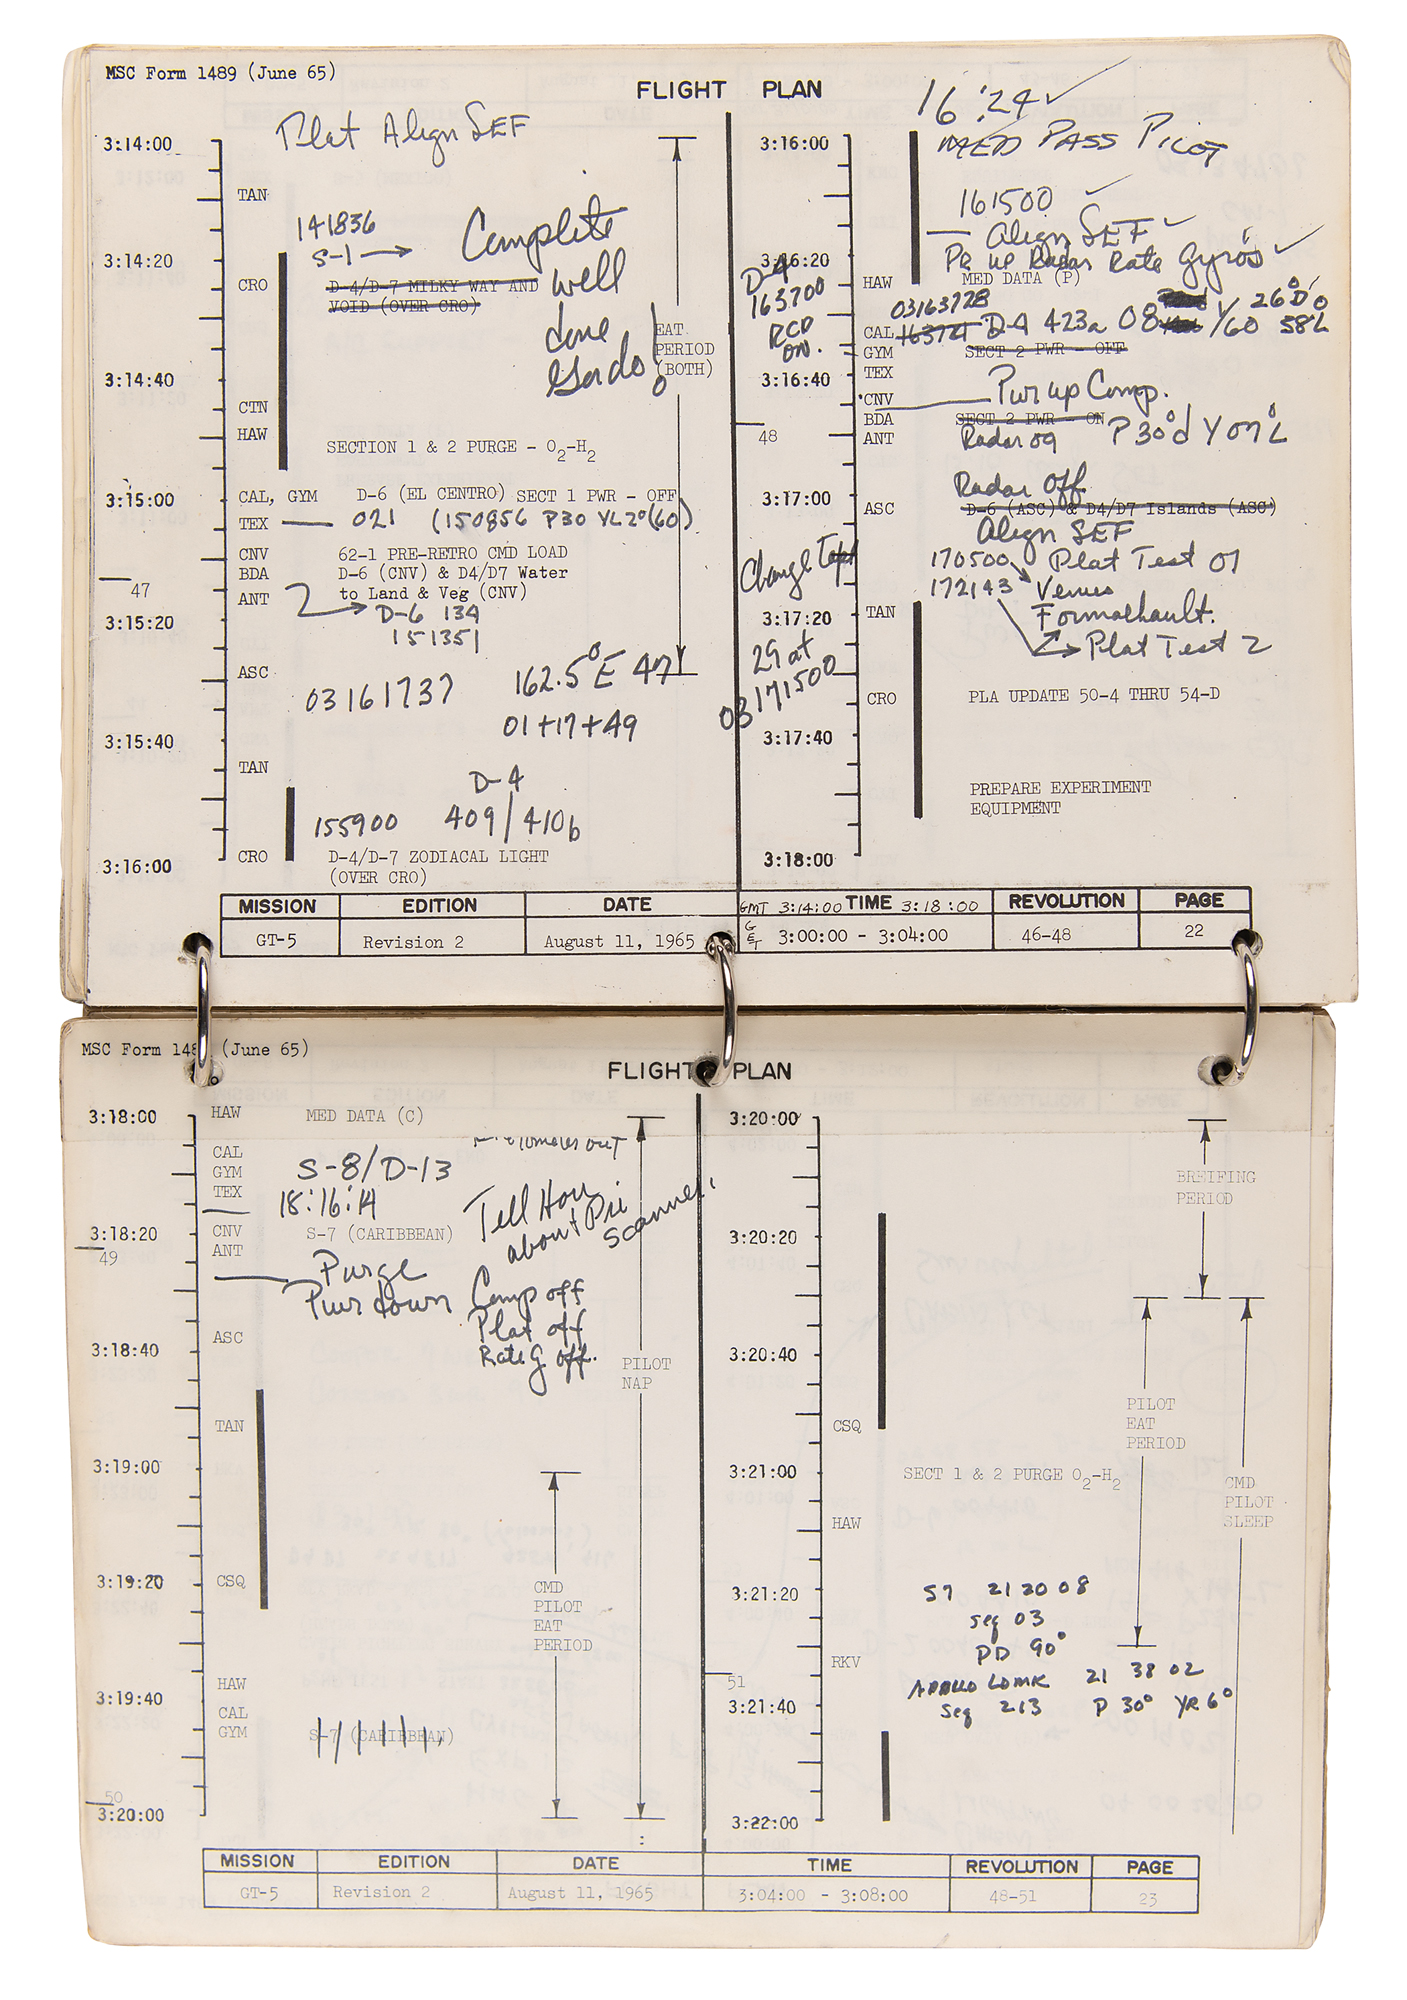 MSC Form 1489 (June 65)
FLIGHT PLAN
3:14:00
Plat Align SEF
TAN
141836
S-1 → Complete
3:14:20
CRO
D-4/D-7 MILKY WAY AND
VOID (OVER CRO)
well
done
Gordo!
EAT
PERIOD
(BOTH)
3:14:40
CTN
HAW
SECTION 1 & 2 PURGE - O2-H2
3:15:00
CAL, GYM D-6 (EL CENTRO) SECT 1 PWR - OFF
TEX 021 (150856 P30 YL2°(60)
CNV 62-1 PRE-RETRO CMD LOAD
BDA D-6 (CNV) & D4/D7 Water
47
ANT to Land & Veg (CNV)
D-6 134
3:15:20
151351
ASC
162.5°E 47
03161737
01+17+49
3:15:40
TAN
D-4
155900 409/410b
3:16:00
CRO D-4/D-7 ZODIACAL LIGHT
(OVER CRO)
16:24
3:16:00
MED PASS PILOT
161500
Align SEF
3:16:20
Pr up Radar Rate Gyro's
HAW MED DATA (P)
D-4
163700
RCD
ON.
03163728 26°D
CAL 163721 D-4 423a 08 Y/60 58°L
GYM SECT 2 PWR - OFF
3:16:40
TEX
CNV Pwr up Comp.
BDA SECT 2 PWR - ON
48
ANT Radar 09 P 30°d Y 07°L
Radar Off
3:17:00
ASC D-6 (ASC) & D4/D7 Islands (ASC)
Align SEF
Change Tape
170500 Plat Test 01
172143 Venus
3:17:20
TAN Formalhault.
Plat Test 2
29 at
03171500
CRO PLA UPDATE 50-4 THRU 54-D
3:17:40
PREPARE EXPERIMENT
EQUIPMENT
3:18:00
MISSION EDITION DATE GMT 3:14:00 TIME 3:18:00 REVOLUTION PAGE
GT-5 Revision 2 August 11, 1965 GET 3:00:00 - 3:04:00 46-48 22
MSC Form 148 (June 65)
FLIGHT PLAN
3:18:00
HAW MED DATA (C)
CAL
GYM S-8/D-13
TEX 18:16:14
3:18:20
CNV S-7 (CARIBBEAN)
49
ANT
out
Tell Hou
about Pri
Scanner!
Purge
Pwr down Comp off
Plat off
Rate G off.
ASC
3:18:40
PILOT
NAP
TAN
3:19:00
3:19:20
CSQ
CMD
PILOT
EAT
PERIOD
HAW
3:19:40
CAL
GYM S-7 (CARIBBEAN)
50
3:20:00
3:20:00
BREIFING
PERIOD
3:20:20
3:20:40
PILOT
EAT
PERIOD
CSQ
3:21:00
SECT 1 & 2 PURGE O2-H2
CMD
PILOT
SLEEP
HAW
3:21:20
S7 21 20 08
seq 03
PD 90°
RKV
51
APOLLO LDMK 21 38 02
3:21:40
seq 213 P 30° YR 6°
3:22:00
MISSION EDITION DATE TIME REVOLUTION PAGE
GT-5 Revision 2 August 11, 1965 3:04:00 - 3:08:00 48-51 23